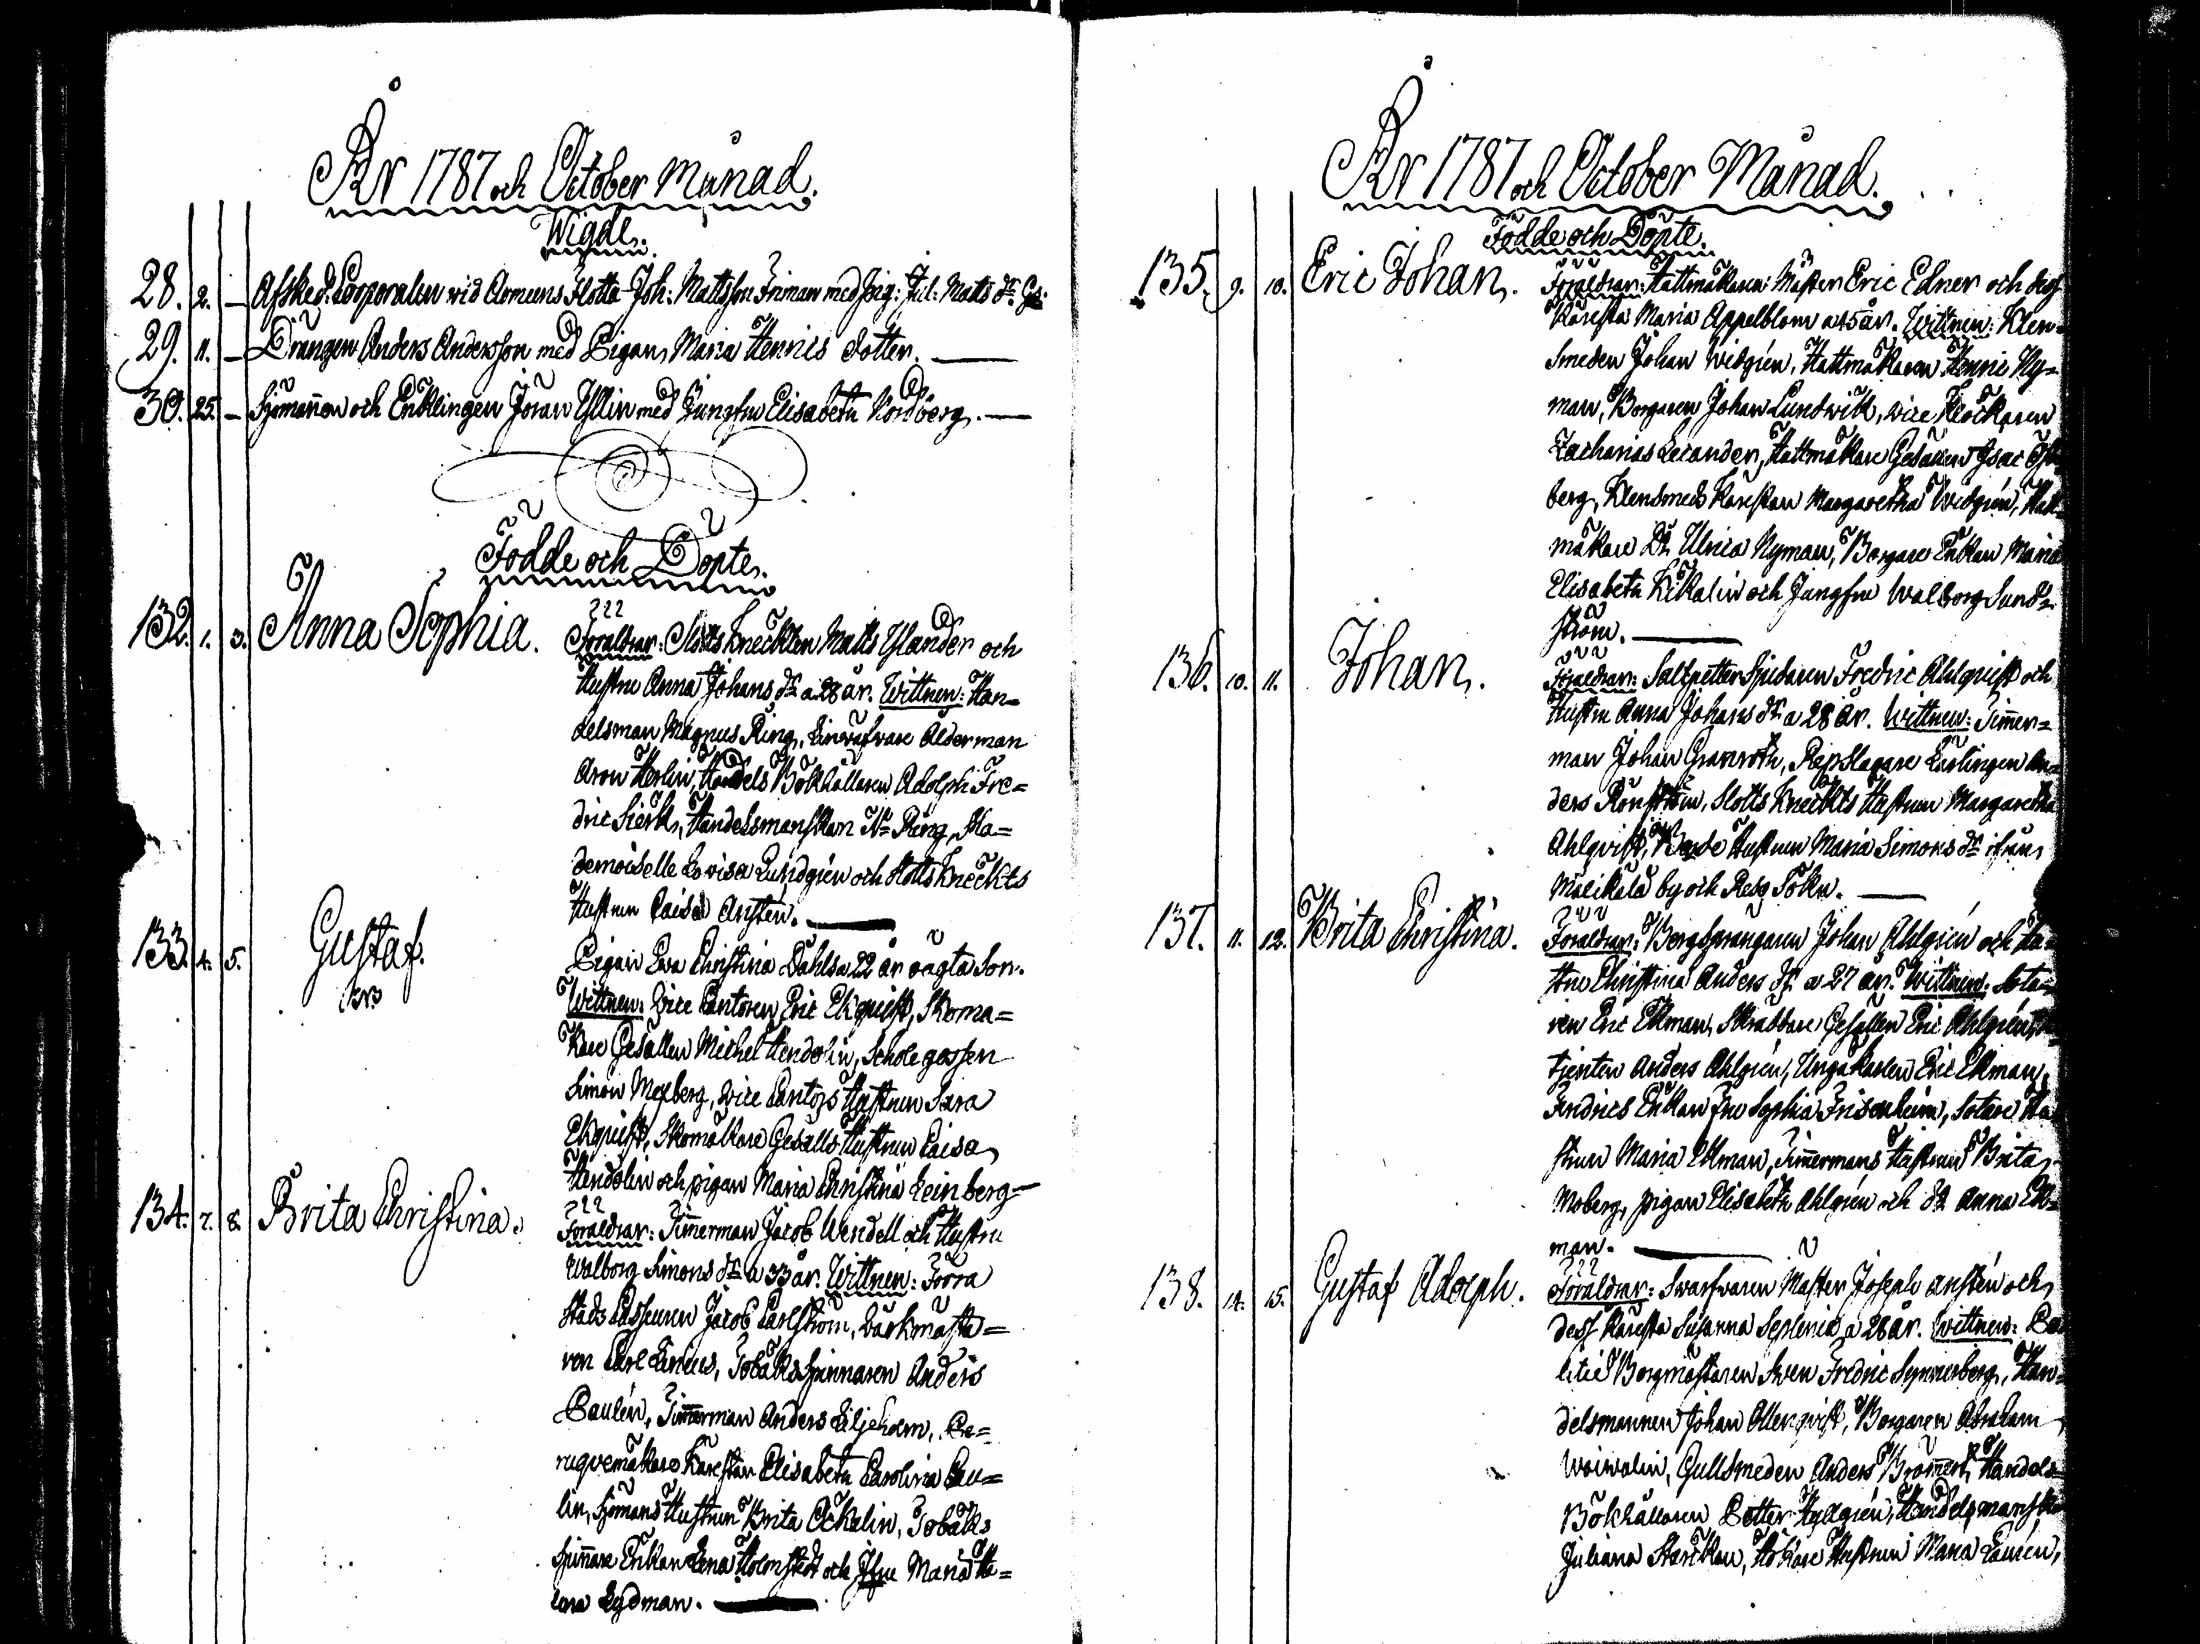 År 1787 och October månad.
Wigde.
28. 2. — Afsked: Corporalen wid Armeens Flotta Joh: Mattsson Friman med Pig: Jul: Matts dr
29. 11. — Drängen Anders Andersson med Pigan Maria Henrics dotter. —
30. 25. — Sjömannen och Enklingen Jöran Yllin med Jungfru Elisabeth Nordberg. —
Födde och Döpte.
132. 1. 3. Anna Sophia. Föräldrar: Slotts Kneckten Matts Ylander och
Hustru Anna Johans dr a 28 år. Wittnen: Han=
delsman Magnus Ring, Ålderman
Aron Herlin, Handels Bokhållaren Adolph Fre=
dric Sierk, Handelsmanskan Ring, Ma=
demoiselle Lovisa Lundgrén och Slotts Kneckts
Hustrun Caisa Anstén. —
133. 4. 5. Gustaf. Pigan Eva Christina Dahls a 22 år oägta Son.
Wittnen: Vice Cantoren Eric Ekquist, Skoma=
kare Gesällen Michel Hendolin, Schole gossen
Simon Mexberg, Vice Cantors Hustrun Sara
Ekquist, Skomakare Gesälls Hustrun Caisa
Hendolin och pigan Maria Christina Leinberg —
134. 7. 8. Brita Christina. Föräldrar: Timmerman Jacob Wendell och Hustru
Walborg Simons dr a 33 år. Wittnen: Förra
Stads Jacob Carlström, Bärkmästa=
ren Carl Tobaks Spinnaren Anders
Paulén, Timmerman Anders Liljeholm, Pe=
ruquemakare Kärestan Elisabeth Carolina Pau=
lin, Sjömans Hustrun Brita Ockelin, Tobaks
Spinnare Enkan Lena Holmstedt och Jfru Maria He=
lena Lydman. —
År 1787 och October Månad.
Födde och Döpte.
135. 9. 10. Eric Johan. Föräldrar: Hattmakaren Mäster Eric Edner och dess
Käresta Maria Appelblom a 45 år. Wittnen: Klen=
Smeden Johan Widgrén, Hattmakaren Henric Ny=
man, Borgaren Johan Lundwik, vice Klockaren
Zacharias Lecander, Hattmakare Gesällen Isac
berg, Klensmeds Kärestan Margaretha Widgrén, Hatt=
makare Do Ulrica Nyman, Borgare Enkan Maria
Elisabeth Kikalin och Jungfru Walborg Sund=
ström. —
136. 10. 11. Johan. Föräldrar: Saltpetter Sjudaren Fredric Ahlquist och
Hustru Anna Johans dr a 28 år. Wittnen: Timmer=
man Johan Granroth, Repslagare Lärlingen An=
ders Rönström, Slotts Kneckts Hustrun Margaretha
Ahlqvist, Bonde Hustrun Maria Simons dr ifrån
by och Sokn. —
137. 11. 12. Brita Christina. Föräldrar: Bergsprängaren Johan Ahlgrén och Hu=
stru Christina Anders dr a 27 år. Wittnen: Sota=
ren Eric Ekman, Skräddare Gesällen Eric Ahlgrén,
tjenten Anders Ahlgrén, Ungakarlen Eric Ekman,
Enkan Fru Sophia Frisenheim, Sotare Hu=
strun Maria Ekman, Timmermans Hustrun Brita
Moberg, pigan Elisabeth Ahlgrén och do Anna Ek=
man. —
138. 14. 15. Gustaf Adolph. Föräldrar: Swarfvaren Mäster Joseph Anstén och
dess Käresta Susanna Seplenia a 28 år. Wittnen: Po
litie Borgmästaren Swen Fredric Synnerberg, Han=
delsmannen Johan Allenqvist, Borgaren Abraham
Waiwalin, Gullsmeden Anders Handels=
Bokhållaren Petter Hydgrén, Handelsmanskan
Juliana Hökare Hustrun Maria